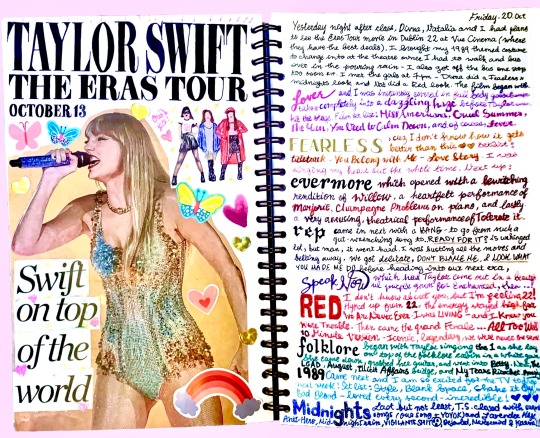 TAYLOR SWIFT
THE ERAS TOUR
OCTOBER 13
Swift
on top
of the
world
Friday, 20 Oct
Yesterday night after class, Divna, Natalia and I had plans
to see the Eras Tour movie in Dublin 22 at Vue Cinema (where
they have the best deals). I brought my 1989 themed costume
to change into at the theatre since I had to walk and bus
over in the pouring rain - I also got off the bus one stop
too soon. I met the girls at 7pm - Divna did a Fearless x
Midnights look and Nat did a Red look. The film began with
Lover and I was intensely served in full body goosebumps
completely into a dazzling huge before Taylor
hit the stage. Fan set list: Miss Americana, Cruel Summer,
The Man, You Need to Calm Down, and of course, Lover.
FEARLESS , cuz I don't know how it gets
better than this
titletrack - You Belong with Me - Love Story. I was
singing my heart out the whole time. Next up?
evermore which opened with a bewitching
rendition of willow, a heartfelt performance of
Marjorie, Champagne Problems on piano, and lastly
a very amusing, theatrical performance of Tolerate it.
rep came in next with a BANG - to go from such a
gut-wrenching song to READY FOR IT? is unhinged
lol, but man, it went hard. I was busting all the moves and
belting away. We got delicate, DONT BLAME ME, & LOOK WHAT
YOU MADE ME DO before heading into our next era,
Speak Now which had Taylor come out in a beautiful
purple gown for Enchanted,
RED I don't know about you, but I'm feeling 22!
up for 22. the energy stayed high for
We Are Never Ever. I was LIVING - and I Knew You
Were Trouble. Then came the grand finale... All Too Well
10 Minute Version - Iconic, legendary, we were never the same
folklore began with Taylor singing the 1 as she lay
on top of the folklore cabin in a white gown
she came down, grabbed her guitar, and went into Betty. Next, The
LGAD, August, Illicit Affairs bridge, and My Tears Ricochet
1989 Came next and I am so excited for the TV
next week! Set list: Style, Blank Space, Shake it
Bad Blood - loved every second - incredible!
Midnights Last but not least, T.S. closed with
songs (our song & YOYOK) and Lavender Haze
Anti-Hero, Midnight Rain, VIGILANTE SHIT, Bejeweled, Mastermind & Karma